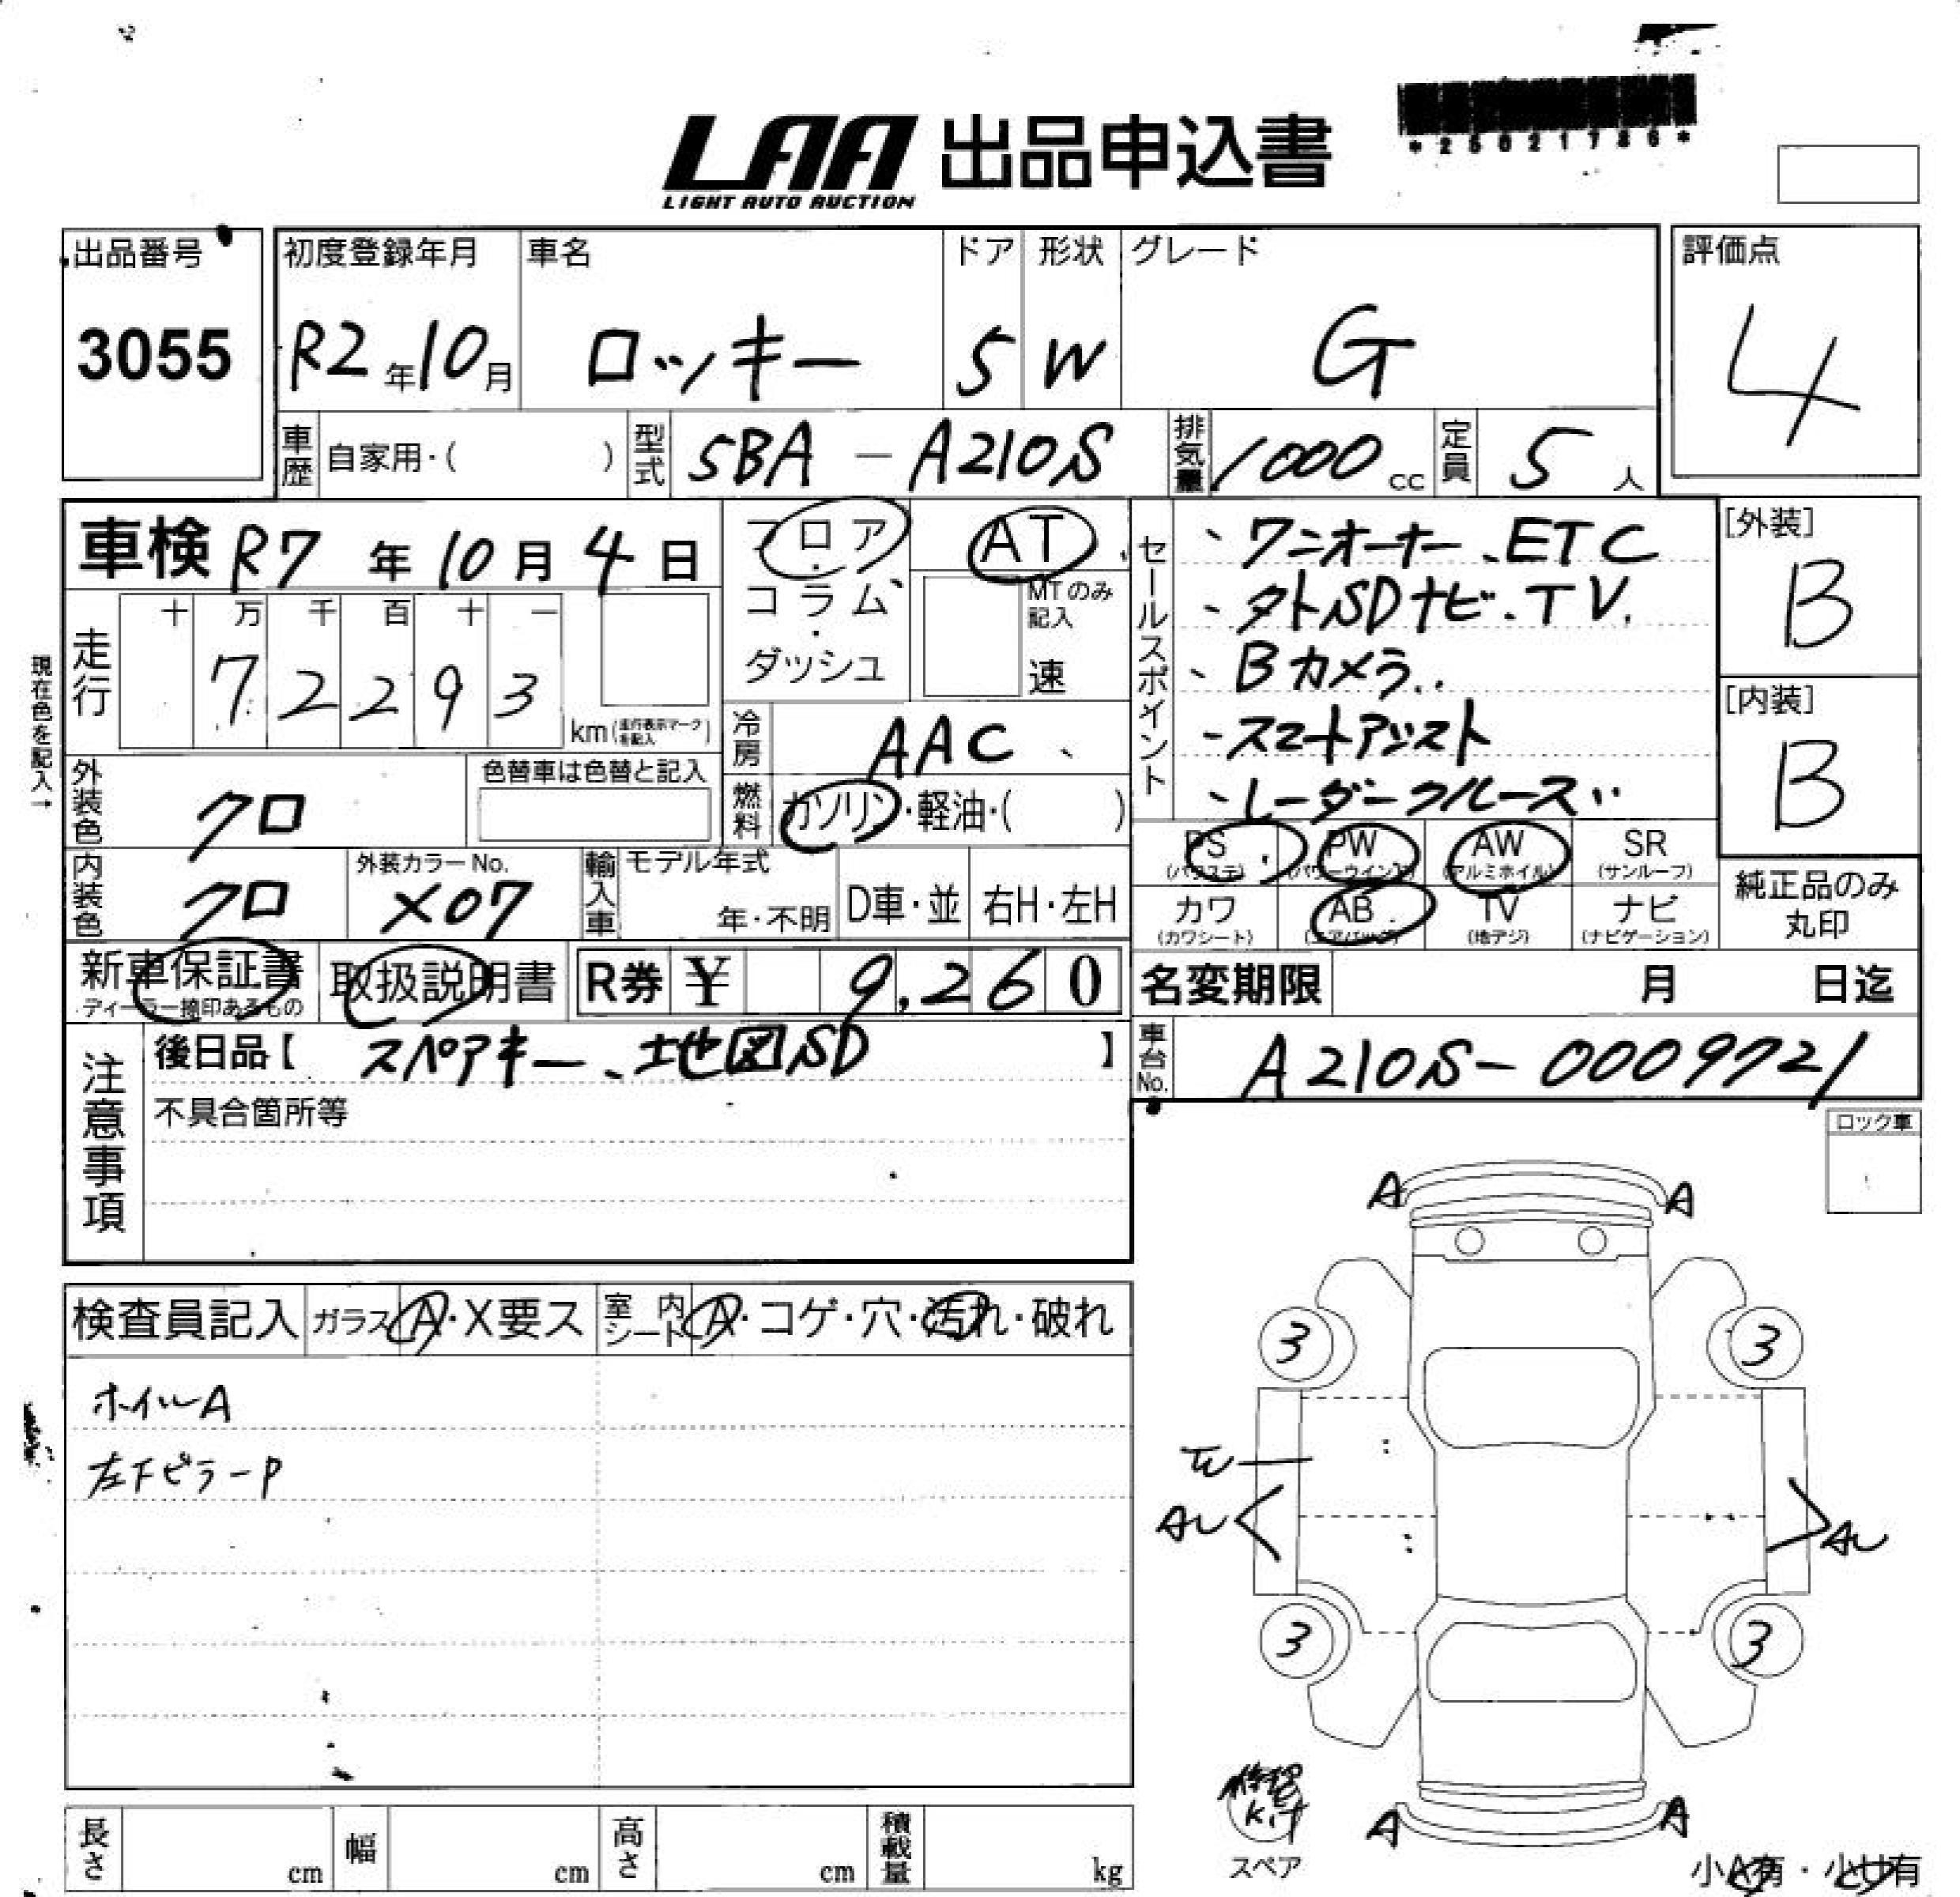 LAA 出品申込書
LIGHT AUTO AUCTION
*25021786*
出品番号
3055
初度登録年月
R2年10月
車名
ロッキー
ドア
5
形状
W
グレード
G
評価点
4
車歴 自家用・( )
型式 5BA-A210S
排気量 1000cc
定員 5人
車検 R7年10月4日
フロア・コラム・ダッシュ
AT
MTのみ記入
速
現在色を記入→
走行
十 万 千 百 十 一
7 2 2 9 3
km(走行表示マークを記入)
冷房 AAC
燃料 ガソリン・軽油・( )
外装色 クロ
色替車は色替と記入
内装色 クロ
外装カラーNo.
X07
輸入車
モデル年式
年・不明
D車・並
右H・左H
セールスポイント
、ワンオーナー、ETC
、外SDナビ、TV.
、Bカメラ..
、スマートアシスト
、レーダークルーズ..
[外装]
B
[内装]
B
PS (パワステ)
PW (パワーウインドウ)
AW (アルミホイル)
SR (サンルーフ)
カワ (カワシート)
AB (エアバッグ)
TV (地デジ)
ナビ (ナビゲーション)
純正品のみ丸印
新車保証書
ディーラー捺印あるもの
取扱説明書
R券 ¥ 9,260
名変期限 月 日迄
車台No. A210S-0009721
注意事項
後日品【 スペアキー、地図SD 】
不具合箇所等
ロック車
検査員記入
ガラス A・X要ス
室内シート A・コゲ・穴・汚れ・破れ
ホイルA
左下ピラーP
A A
3 3
AU AU
3 3
A A
修理Kit
スペア
小A有・小U有
長さ cm
幅 cm
高さ cm
積載量 kg